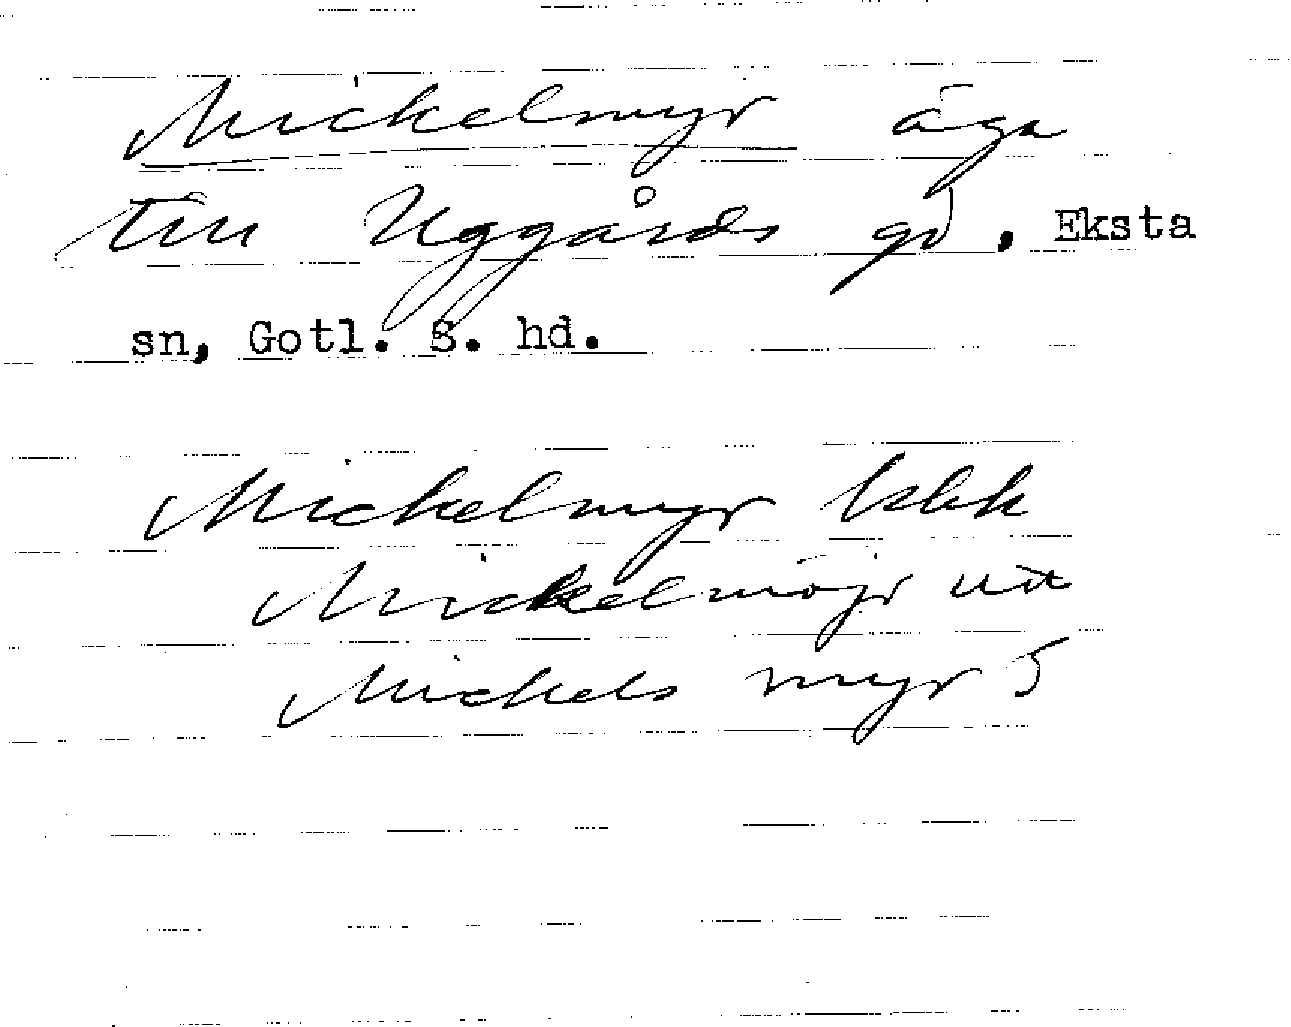 Mickelmyr äga
till Uggårds gd. Eksta
sn, Gotl. S. hd.
Mickelmyr kbk
Mickelmöjr utt
Mickels myr 5